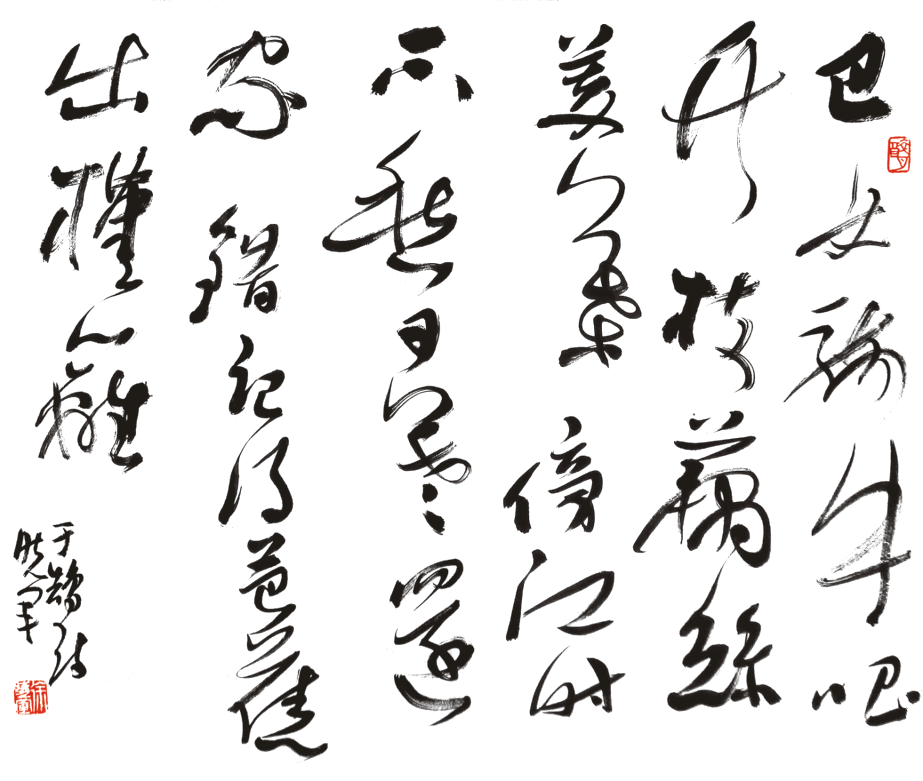 巴女騎牛唱
竹枝藕絲
菱葉傍江时
不愁日暮還
家錯记得芭蕉
出槿籬
于鵠诗